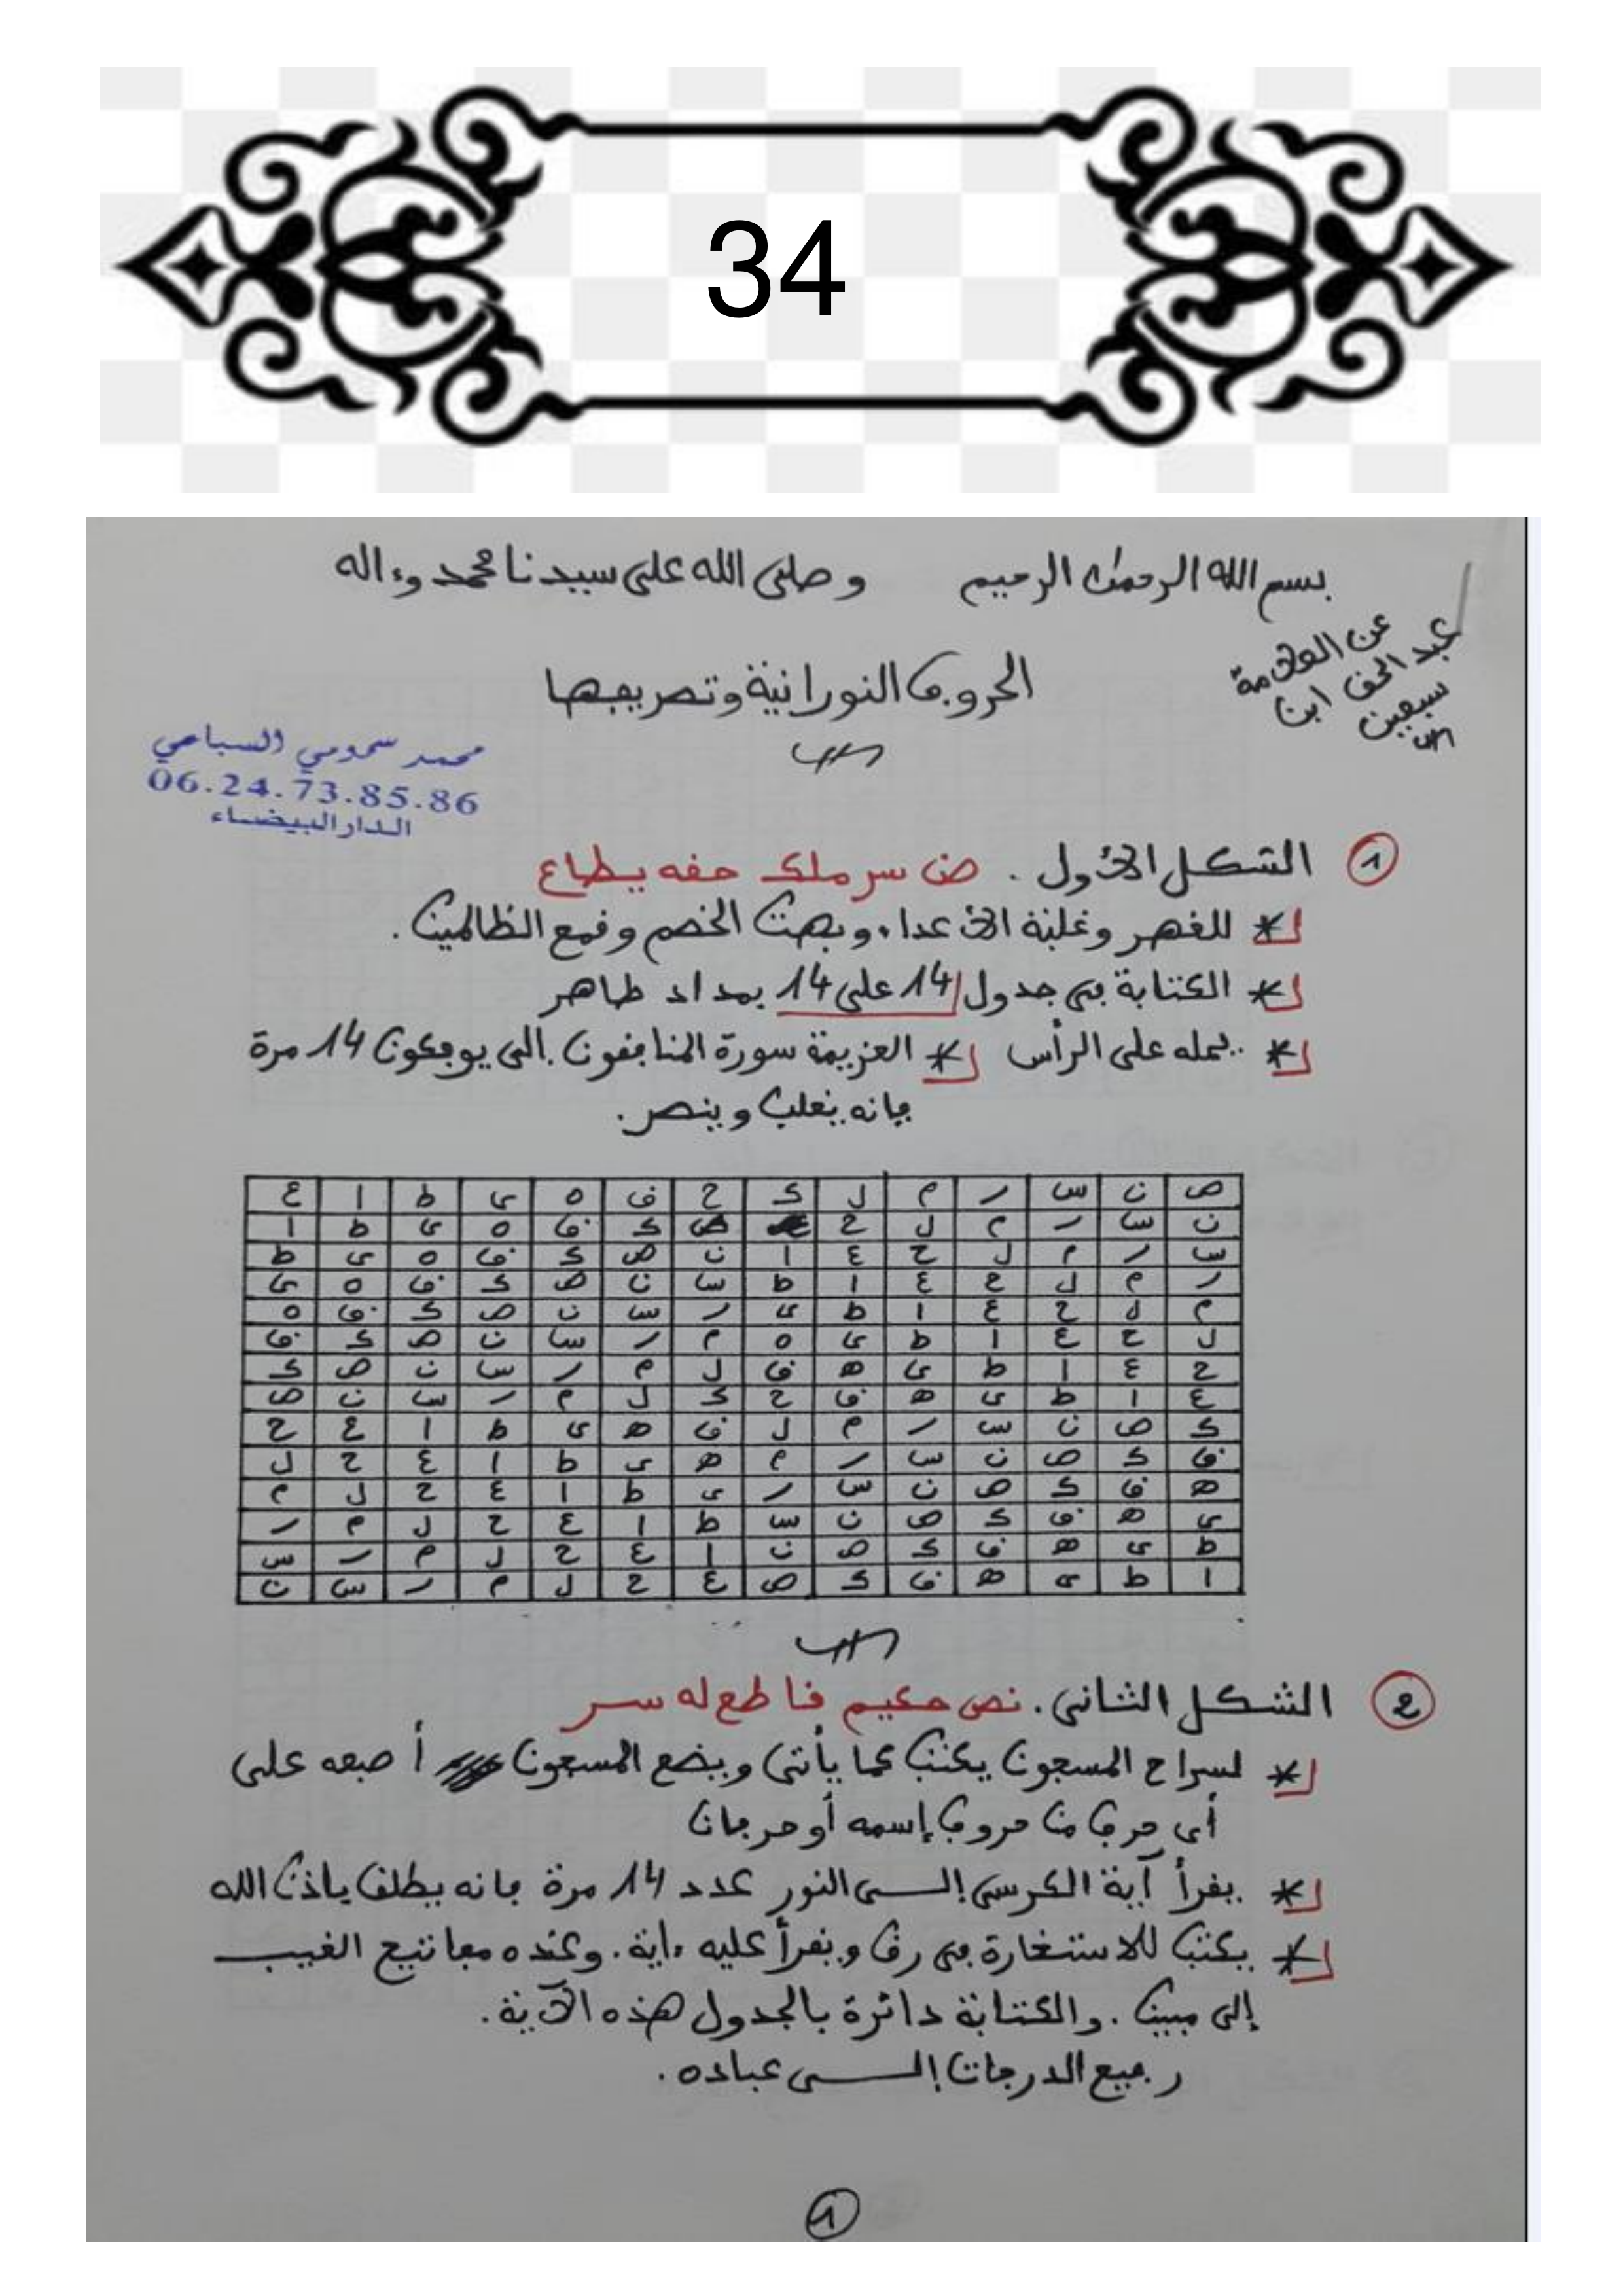 34
بسم الله الرحمن الرحيم وصلى الله على سيدنا محمد وءاله
عن العلامة
عبد الحق ابن
سبعين
الحروف النورانية وتصريفها
محمد سحومي السباعي
06.24.73.85.86
الدار البيضاء
1 الشكل الأول . صن سر ملك حقه يطاع
* للقهر وغلبة الأعداء وبهت الخصم وقمع الظالمين .
* الكتابة في جدول 14 على 14 بمداد طاهر
* يحمله على الرأس * العزيمة سورة المنافقون . الى يوفكون 14 مرة
فإنه يغلب وينصر .
ص ن س ر م ل ك ح ق ه ى ط ا ع
ن س ر م ل ح ص ك ق ه ى ط ا
س ر م ل ح ع ا ن ص ك ق ه ى ط
ر م ل ح ع ا ط س ن ص ك ق ه ى
م ل ح ع ا ط ى ر س ن ص ك ق ه
ل ح ع ا ط ى ه م ر س ن ص ك ق
ح ع ا ط ى ه ق ل م ر س ن ص ك
ع ا ط ى ه ق ح ك ل م ر س ن ص
ك ص ن س ر م ل ق ه ى ط ا ع ح
ق ك ص ن س ر م ه ى ط ا ع ح ل
ه ق ك ص ن س ر ى ط ا ع ح ل م
ى ه ق ك ص ن س ط ا ع ح ل م ر
ط ى ه ق ك ص ن ا ع ح ل م ر س
ا ط ى ه ق ك ص ع ح ل م ر س ن
2 الشكل الثاني . نص حكيم قاطع له سر
* لسراح المسجون يكتب كما يأتي ويضع المسجون أصبعه على
أي حرف من حروف إسمه أو حرفان
* يقرأ آية الكرسي إلــى النور عدد 14 مرة فإنه يطلق بإذن الله
* يكتب للاستخارة في رق ويقرأ عليه ءاية . وعنده مفاتيح الغيب
إلى مبين . والكتابة دائرة بالجدول هذه الآية .
رفيع الدرجات إلــى عباده .
1